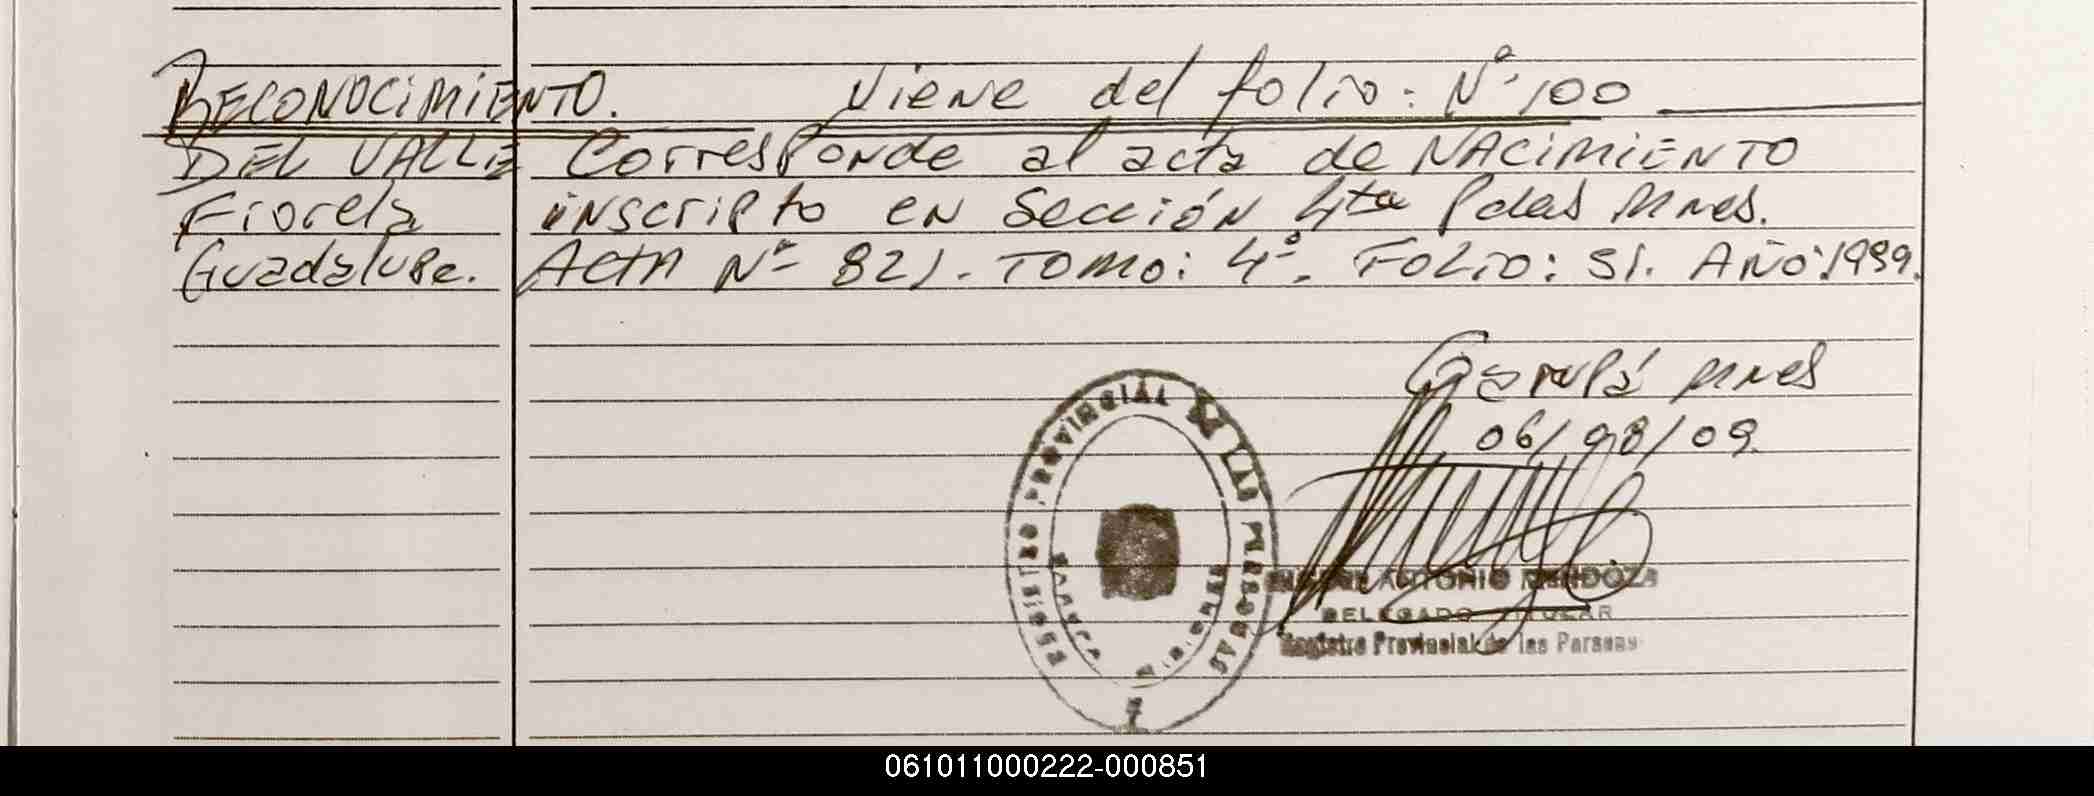 RECONOCIMIENTO. Viene del folio: Nº 100
DEL VALLE Corresponde al acta de NACIMIENTO
Fiorela inscripto en Sección 4ta Pdas Mnes.
Guadalupe. Acta Nº 821. TOMO: 4º. FOLIO: 51. AÑO: 1999.
Garupá Mnes
06/08/09.
REGISTRO PROVINCIAL DE LAS PERSONAS
GARUPA
MISIONES
ANTONIO MENDOZA
DELEGADO TITULAR
Registro Provincial de las Personas
061011000222-000851